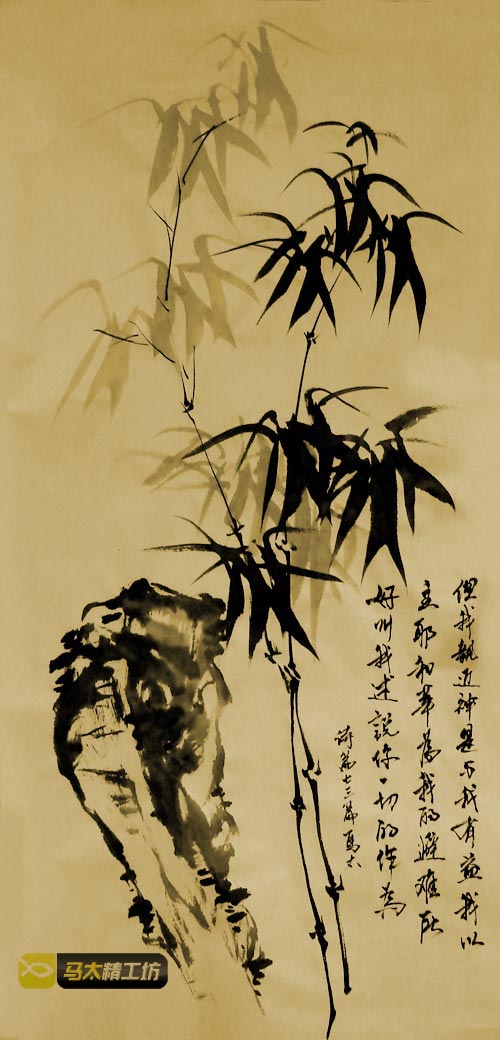 但我親近神是与我有益我以
主耶和華為我的避难所
好叫我述說你一切的作為
诗篇七三篇馬太
马太精工坊